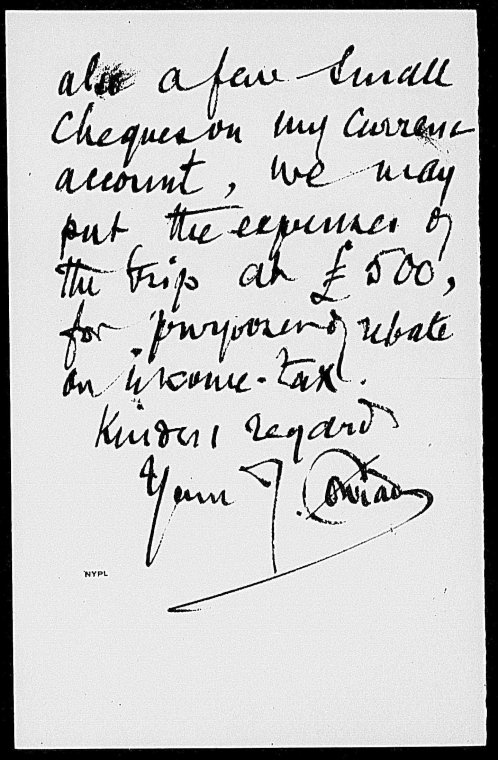 also a few small
cheques on my current
account, we may
put the expenses of
the trip at £500,
for purposes of rebate
on income-tax.
Kindest regards
Yours J. Conrad
NYPL